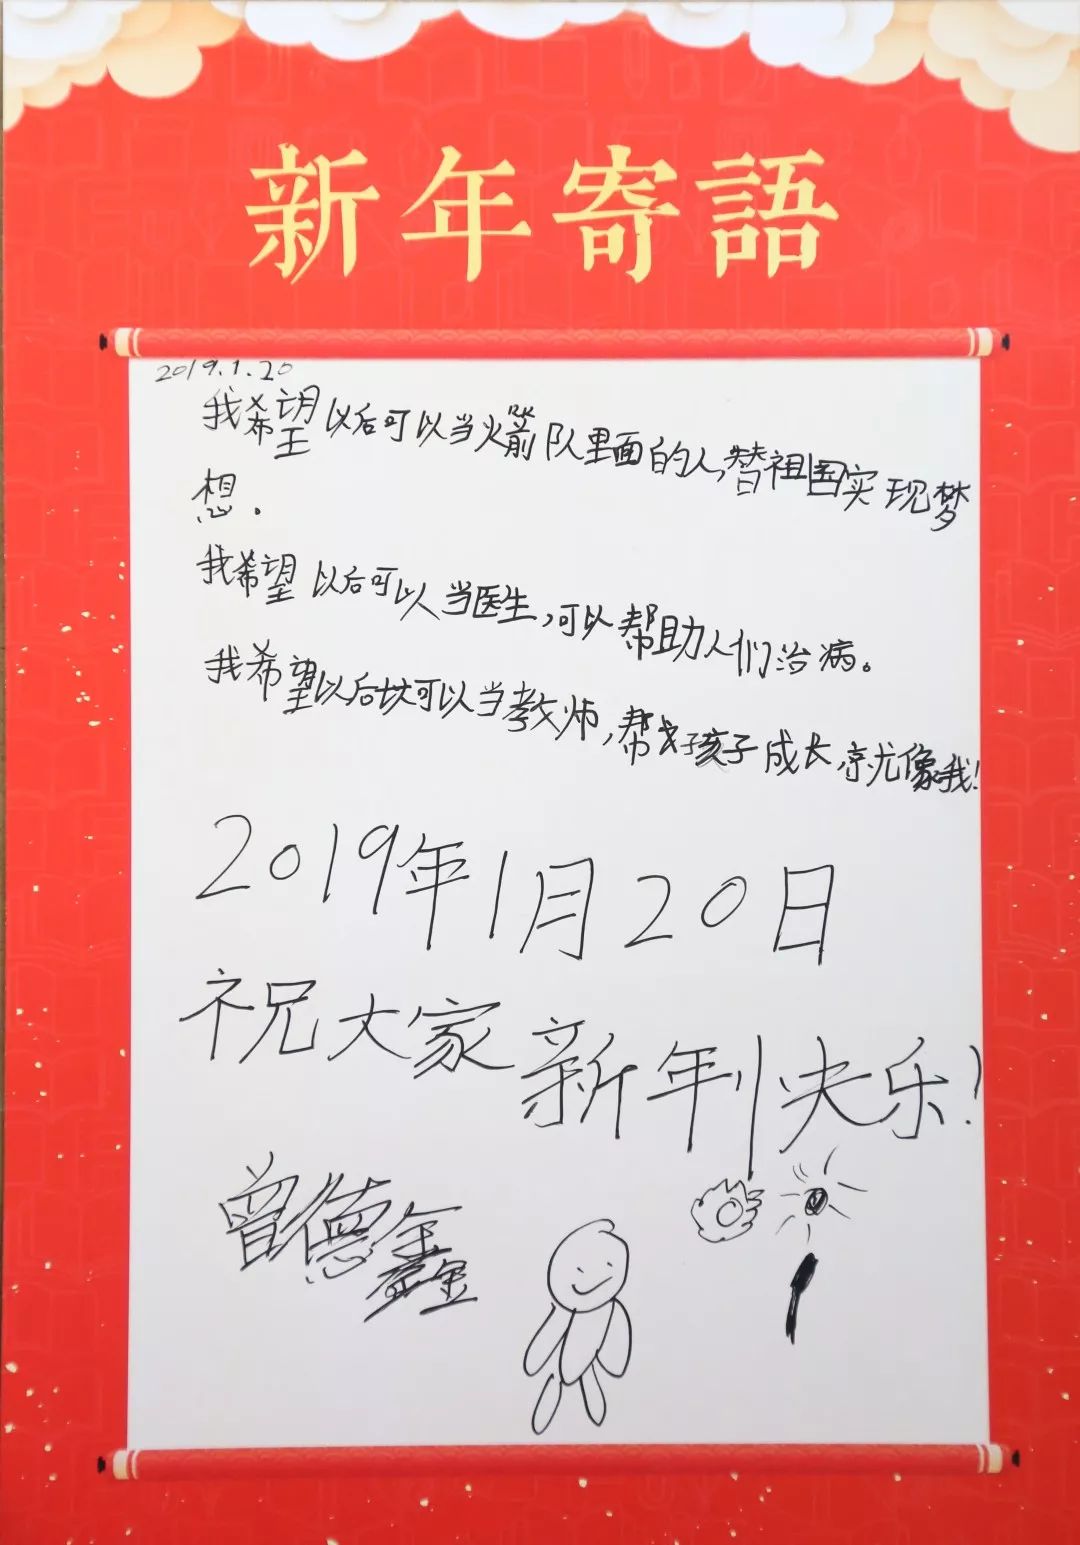 新年寄語
2019.1.20
我希望以后可以当火箭队里面的人,替祖国实现梦
想。
我希望以后可以当医生,可以帮助人们治病。
我希望以后可以当教师,帮孩子成长,就像我!
2019年1月20日
祝大家新年快乐!
曾德鑫